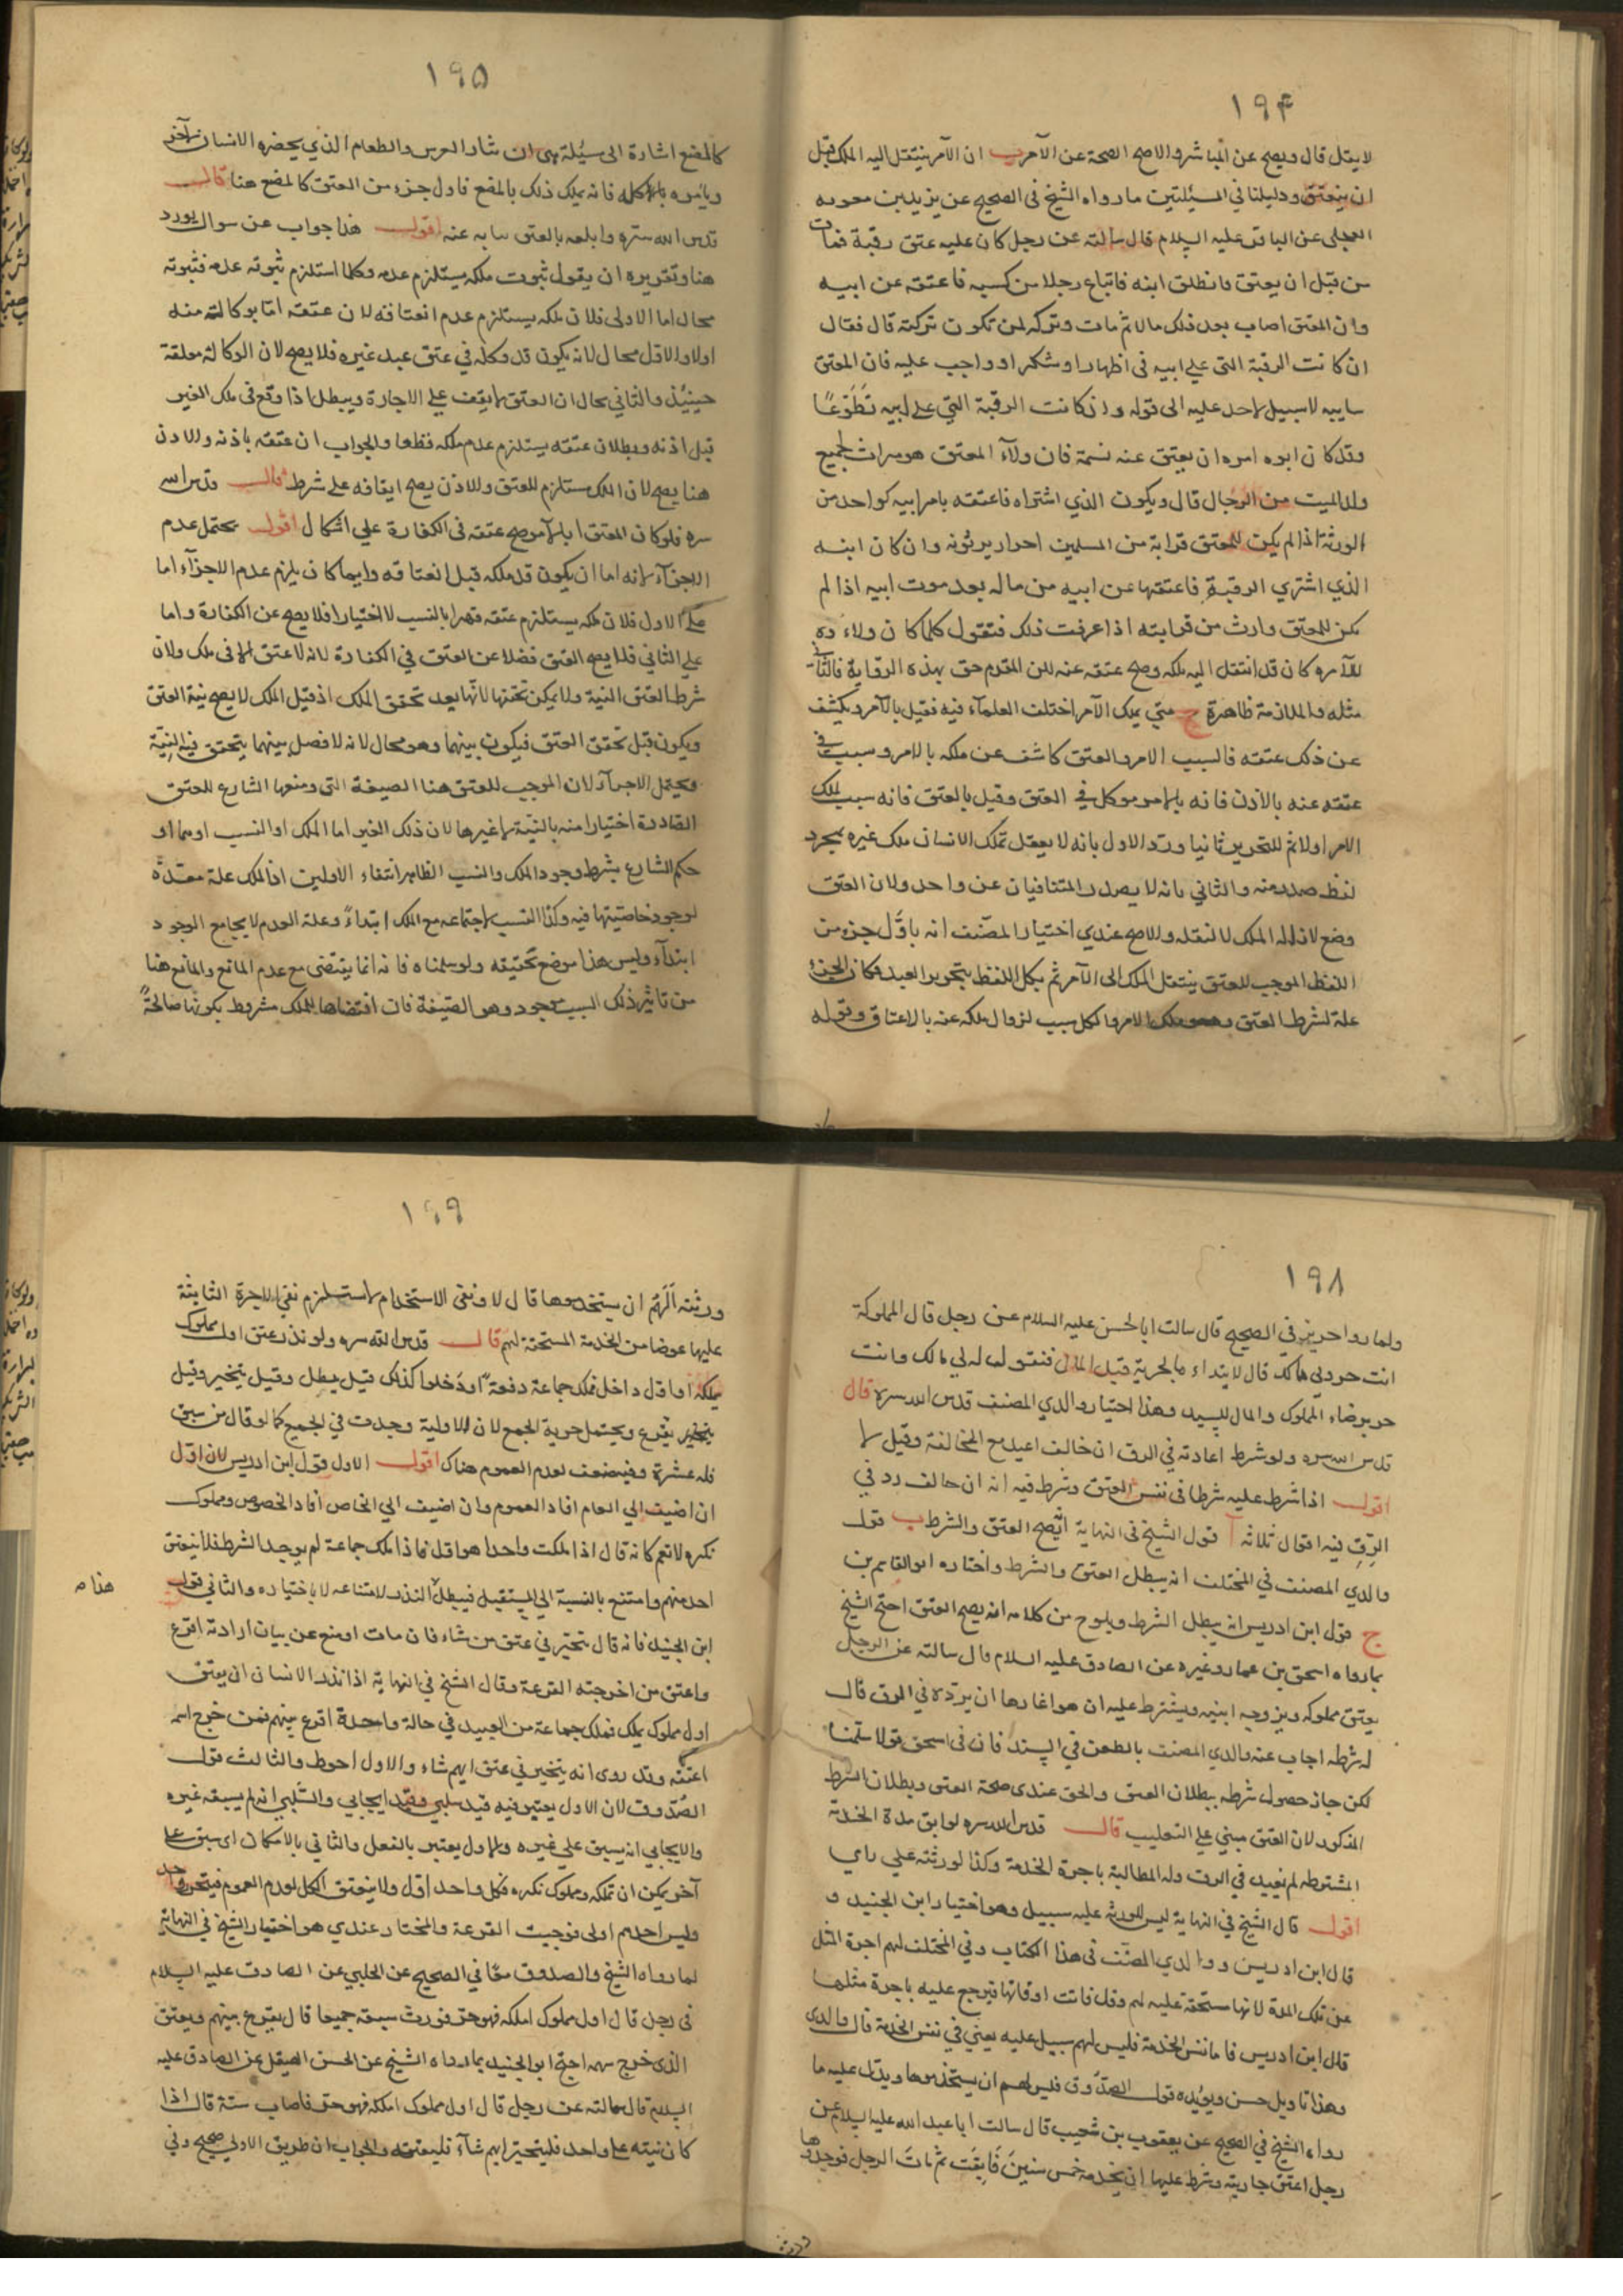 ١٩۴
لا يقتل قال ويصح عن المباشر والاصح الصحة عن الآمر ب ان الآمر ينتقل اليه الملك قبل
ان ينعتق ودليلنا في المسئلتين ما رواه الشيخ في الصحيح عن يزيد بن معويه
العجلى عن الباقر عليه السلام قال سالته عن رجل كان عليه عتق رقبة فمات
من قبل ان يعتق فانطلق ابنه فابتاع رجلا من كسبه فاعتقه عن ابيه
وان المعتق اصاب بعد ذلك مالا ثم مات وتركه لمن تكون تركته قال فقال
ان كانت الرقبة التى على ابيه فى اظهار او شكر او واجب عليه فان المعتق
سايبه لا سبيل لاحد عليه الى قوله وان كانت الرقبة التي على ابيه تطوعًا
وقد كان ابوه امره ان يعتق عنه نسمة فان ولآء المعتق هو ميراث لجميع
ولد الميت من الرجال قال ويكون الذي اشتراه فاعتقه بامر ابيه كواحد من
الورثة اذا لم يكن للمعتق قرابة من المسلمين احرار يرثونه وان كان ابنه
الذي اشتري الرقبة فاعتقها عن ابيه من ماله بعد موت ابيه اذا لم
يكن للمعتق وارث من قرابته اذا عرفت ذلك فنقول كلما كان ولاءه
للآمر كان قد انتقل اليه ملكه وصح عتقه عنه لكن المقدم حق بهذه الرواية فالتالى
مثله والملازمة ظاهرة ج متي يملك الآمر اختلف العلمآء فيه فقيل بالآمر ويكشف
عن ذلك عتقه فالسبب الامر والعتق كاشف عن ملكه بالامر وسبب في
عتقه عنه بالاذن فانه بالامر موكل في العتق وقيل بالعتق فانه سبب لملك
الامر اولا ثم للتحرير ثانيا ورد الاول بانه لا يعقل تملك الانسان ملك غيره بمجرد
لفظ صدر منه والثاني بانه لا يصدر المتنافيان عن واحد ولان العتق
وضع لازالة الملك لا لنقله والاصح عندي اختيار المصنف انه باول جزء من
اللفظ الموجب للعتق ينتقل الملك الى الآمر ثم بكل اللفظ يتحرر العبد فكان الجزء
علة لشرط العتق وهو ملك الامر والكل سبب لزوال ملكه عنه بالاعتاق وقوله
١٩۵
كالمضع اشارة الى مسئلة هى ان نثار العرس والطعام الذي يحضره الانسان لآخر
ويامره باكله فانه يملك ذلك بالمضع فاول جزء من العتق كالمضع هنا قال
قدس الله سره اقول هذا جواب عن سوال يورد
هنا وتقريره ان يقول ثبوت ملكه يستلزم عدمه وكلما استلزم ثبوته عدمه فثبوته
محال اما الاولى فلان ملكه يستلزم عدم انعتاقه لان عتقه اما بوكالته منه
اولا والاول محال لانه يكون قد وكله في عتق عبد غيره فلا يصح لان الوكالة معلقة
حينئذ والثاني محال لان العتق لا يقف على الاجازة ويبطل اذا وقع فى ملك الغير
قبل اذنه وبطلان عتقه يستلزم عدم ملكه قطعا والجواب ان عتقه باذنه والاذن
هنا يصح لان الملك مستلزم للعتق والاذن يصح ايقافه على شرط قال قدس الله
سره فلو كان المعتق ابا للآمر صح عتقه فى الكفارة على اشكال اقول يحتمل عدم
الاجزآء لانه اما ان يكون قد ملكه قبل انعتاقه وايما كان يلزم عدم الاجزآء اما
على الاول فلان ملكه يستلزم عتقه قهرا بالنسب لا اختيارا فلا يصح عن الكفارة واما
على الثاني فلا يصح العتق فضلا عن العتق في الكفارة لانه لا عتق الا فى ملك ولان
شرط العتق النية ولا يمكن تحققها لانها بعد تحقق الملك اذ قبل الملك لا يصح نية العتق
ويكون قبل تحقق العتق فيكون بينهما وهو محال لانه لا فصل بينهما يتحقق فيه النية
ويحتمل الاجزآء لان الموجب للعتق هنا الصيغة التى وضعها الشارع للعتق
الصادرة اختيارا منه بالنية لا غيرها لان ذلك الغير اما الملك او النسب او هما او
حكم الشارع بشرط وجود الملك والنسب الظاهر انتفاء الاولين اذ الملك علة معدة
لوجود خاصيتها فيه وكذا النسب لاجتماعه مع الملك ابتداءً وعلة العدم لا يجامع الوجود
ابتدآء وليس هذا موضع تحقيقه ولو سلمناه فانه انما يقتضى مع عدم المانع والمانع هنا
من تاثير ذلك السبب موجود وهو الصيغة فان اقتضاها للملك مشروط بكونها صالحةً
١٩٨
ولما رواه حريز في الصحيح قال سالت ابا الحسن عليه السلام عن رجل قال لمملوكه
انت حر ولي مالك قال لا يبتداء بالحرية قبل المال فنقول له لي مالك وانت
حر برضاء المملوك والمال للسيد وهذا اختيار والدي المصنف قدس الله سره قال
قدس الله سره ولو شرط اعادته في الرق ان خالف اعيد مع المخالفة وقيل لا
اقول اذا شرط عليه شرطا فى نفس العتق وشرط فيه انه ان خالف رد في
الرق فيه اقوال ثلاثه آ قول الشيخ فى النهاية انه يصح العتق والشرط ب قول
والدي المصنف في المختلف انه يبطل العتق والشرط واختاره ابو القاسم بن
ج قول ابن ادريس انه يبطل الشرط ويلوح من كلامه انه يصح العتق احتج الشيخ
بما رواه اسحق بن عمار وغيره عن الصادق عليه السلام قال سالته عن الرجل
يعتق مملوكه ويزوجه ابنته ويشترط عليه ان هو اغارها ان يرده في الرق قال
له شرطه اجاب عنه والدي المصنف بالطعن في السند فان فى اسحق قولا سلمنا
لكن جاز حصول شرطه ببطلان العتق والحق عندى صحة العتق وبطلان الشرط
المذكور لان العتق مبني على التغليب قال قدس الله سره لو ابق مدة الخدمة
المشترطه لم يعد في الرق وله المطالبة باجرة الخدمة وكذا لورثته على راي
اقول قال الشيخ في النهاية ليس للورثه عليه سبيل وهو اختيار ابن الجنيد و
قال ابن ادريس ووالدي المصنف فى هذا الكتاب وفي المختلف لهم اجرة المثل
عن تلك المدة لانها مستحقة عليه لهم وقد فاتت اوقاتها فيرجع عليه باجرة مثلها
قال ابن ادريس فاما نفس الخدمة فليس لهم سبيل عليه يعني في نفس الخدمة قال والدى
وهذا تاويل حسن ويؤيده قول الصدوق فليس لهم ان يستخدموها ويدل عليه ما
رواه الشيخ في الصحيح عن يعقوب بن شعيب قال سالت ابا عبد الله عليه السلام عن
رجل اعتق جاريته وشرط عليها ان تخدمه خمس سنين فابقت ثم مات الرجل فوجدوها
ورثته
١٩٩
ورثته ألهم ان يستخدموها قال لا ونفى الاستخدام لا يستلزم نفي الاجرة الثابتة
عليها عوضا من الخدمة المستحقة لهم قال قدس الله سره ولو نذر عتق اول مملوك
يملكه او اول داخل فملك جماعة دفعة او دخلوا كذلك قيل يبطل وقيل يتخير وقيل
يقرع ويحتمل حرية الجمع لان الاولية وجدت في الجميع كما لو قال من سبق
فله عشرة وفيه ضعف لعدم العموم هناك اقول الاول قول ابن ادريس لان اول
ان اضيف الى العام افاد العموم وان اضيف الى الخاص افاد الخصوص ومملوك
نكره لا تعم كانه قال اذا ملكت واحدا هو اول فاذا ملك جماعة لم يوجد الشرط فلا ينعتق
احد منهم وامتنع بالنسبة الى المستقبل فيبطل النذر لامتناعه لا باختياره والثاني قول
هذا م
ابن الجنيد فانه قال يتخير في عتق من شاء فان مات او منع عن بيان ارادته اقرع
واعتق من اخرجته القرعة وقال الشيخ في النهاية اذا نذر الانسان ان يعتق
اول مملوك يملكه فملك جماعة من العبيد في حالة واحدة اقرع بينهم فمن خرج اسمه
اعتقه وقد روى انه يتخير في عتق ايهم شاء والاول احوط والثالث قول
الصدوق لان الاول يعتبر فيه قيد سلبي وقيد ايجابي والسلبي انه لم يسبقه غيره
والايجابي انه يسبق على غيره والاول يعتبر بالفعل والثاني بالامكان اى سبق على
آخر يمكن ان تملكه ومملوك نكره فكل واحد اول ولا ينعتق الكل لعدم العموم فيتحرر واحد
وليس احدهم اولى فوجبت القرعة والمختار عندي هو اختيار الشيخ في النهاية
لما رواه الشيخ والصدوق معًا في الصحيح عن الحلبي عن الصادق عليه السلام
فى رجل قال اول مملوك املكه فهو حر فورث سبعة جميعا قال يقرع بينهم ويعتق
الذى خرج سهمه احتج ابن الجنيد بما رواه الشيخ عن الحسن الصيقل عن الصادق عليه
السلام قال سالته عن رجل قال اول مملوك املكه فهو حر فاصاب ستة قال اذا
كان نيته على واحد فليتخير ايهم شآء فليعتقه والجواب ان طريق الاولى صحيح وفي